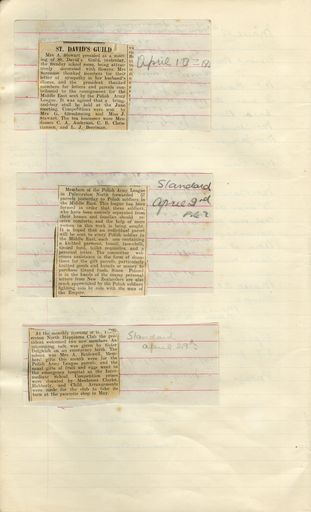 ST. DAVID'S GUILD
Mrs A. Stewart presided at a meet-
ing of St. David's Guild, yesterday,
the Sunday school room, being attrac-
tively decorated with flowers. Mrs
thanked members for their
letter of sympathy in her husband's
illness, and the president thanked
members for letters and parcels con-
tributed to the consignment for the
Middle East sent by the Polish Army
League. It was agreed that a bring-
and-buy stall be held at the June
meeting. Competitions were sent by
Mrs G. Glendinning and Miss J.
Stewart. The tea hostesses were Mes-
dames C. A. Anderson, C. R. Chris-
tensen, and L. J. Berriman.
April 1
Members of the Polish Army League
in Palmerston North forwarded
parcels yesterday to Polish soldiers in
the Middle East. This league has been
formed in order that these soldiers,
who have been entirely separated from
their homes and families should re-
ceive comforts, and the help of more
writers in this work is being sought.
It is hoped that an individual parcel
will be sent to every Polish soldier in
the Middle East, each one containing
a knitted garment, towel, handker-
tinned food, toilet requisites, and a
personal letter. The committee wel-
comes assistance in the form of dona-
tions for the gift parcels, particularly
knitted goods and towels or money to
purchase tinned foods. Since Poland
is in the hands of the enemy personal
letters from New Zealanders are also
much appreciated by the Polish soldiers
fighting side by side with the men of
the Empire.
Standard
April 2nd
At the monthly meeting of
erston North Happiness Club the pre-
sident welcomed two new members. An
interesting talk was given by Sister
Dulgwich on an emergency birth. The
was Mrs A. Rockwell. Mem-
bers' gifts this month were for the
Polish Army League parcel, and the
usual gifts of fruit and eggs went to
the emergency hospital at the Inter-
mediate School. Competition prizes
were donated by Mesdames Clarke,
and Child. Arrangements
were made for the club to take its
turn at the patriotic shop in May.
Standard
April